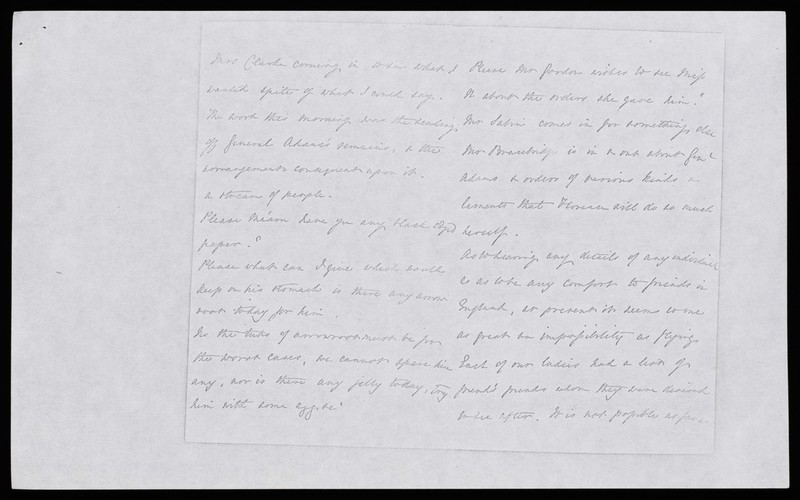 Mrs Clarke coming in to see what I
wanted spite of what I could say.
The work this morning was the sending
off General Adams's remains, & the
arrangements consequent upon it.
a stream of people.
Please Ma'am have you any black edged
paper?"
Please what can I give which would
keep on his stomach is there any arrow
root today for him
No the tubs of arrowroot must be for
the worst cases, we cannot spare him
any, nor is there any jelly today, try
him with some eggs &c"
Please Mr Gordon wishes to see Miss
N about the orders she gave him."
Mr Sabin comes in for something else
Mr Bracebridge is in & out about Genl
Adams & orders of various kinds &
laments that Florence will do so much
herself.
As to hearing any details of any individual
so as to be any comfort to friends in
England, at present it seems to me
as great an impossibility as flying
Each of our ladies had a list of
friends' friends whom they were desired
to see after. It is not possible as far